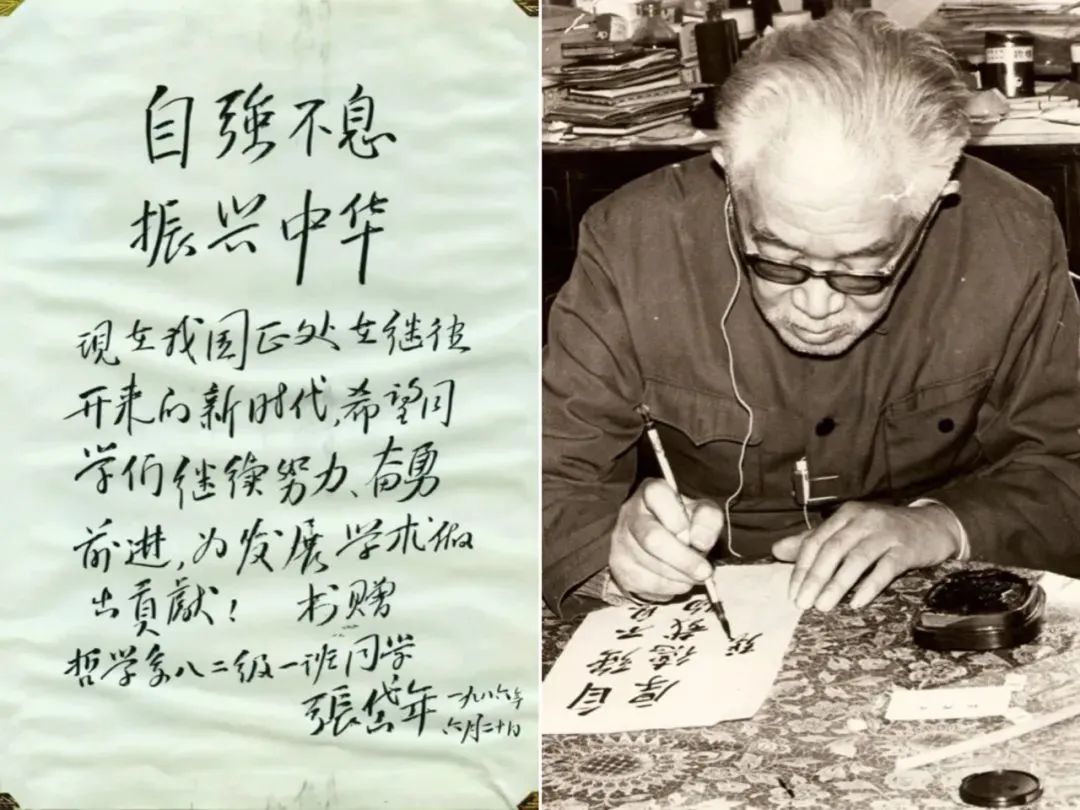 自強不息
振兴中华
現在我国正处在继往
开来的新时代,希望同
学们继续努力、奋勇
前进,为发展学术做
出貢獻! 书赠
哲学系八二级一班同学
張岱年 一九八六年
六月二十日
自強不息
厚德载物